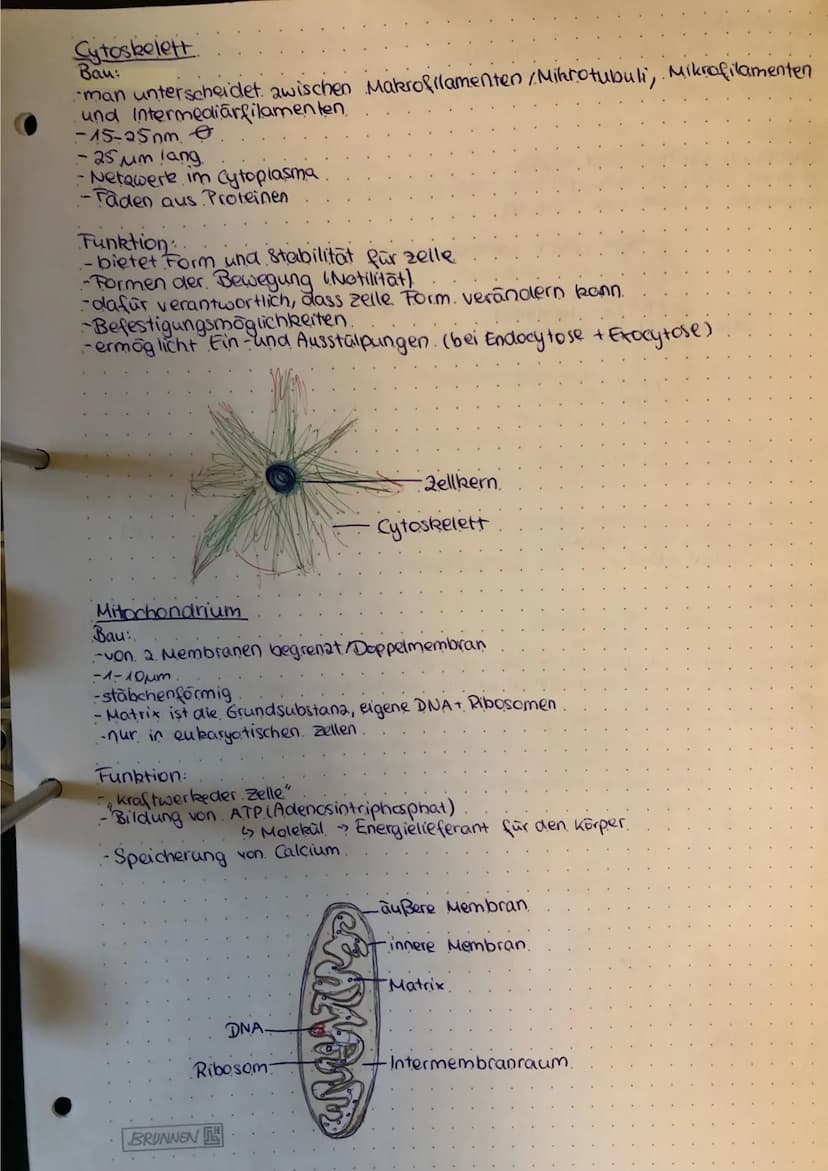 Cytoskelett
Bau:
-man unterscheidet zwischen Makrofilamenten/Mikrotubuli, Mikrofilamenten
und Intermediärfilamenten
-15-25nm ∅
-25µm lang
-Netzwerk im Cytoplasma
-Fäden aus Proteinen
Funktion:
-bietet Form und Stabilität für Zelle
-Formen der Bewegung (Notilität)
-dafür verantwortlich, dass Zelle Form verändern kann
-Befestigungsmöglichkeiten
-ermöglicht Ein-und Ausstülpungen (bei Endocytose + Exocytose)
Zellkern
Cytoskelett
Mitochondrium
Bau:
-von 2 Membranen begrenzt/Doppelmembran
-1-10µm
-stäbchenförmig
-Matrix ist die Grundsubstanz, eigene DNA+ Ribosomen
-nur in eukaryotischen Zellen
Funktion:
-„Kraftwerke der Zelle"
-Bildung von ATP (Adenosintriphosphat)
↳ Molekül → Energielieferant für den Körper
-Speicherung von Calcium
äußere Membran
innere Membran
Matrix
DNA
Ribosom
Intermembranraum
BRUNNEN